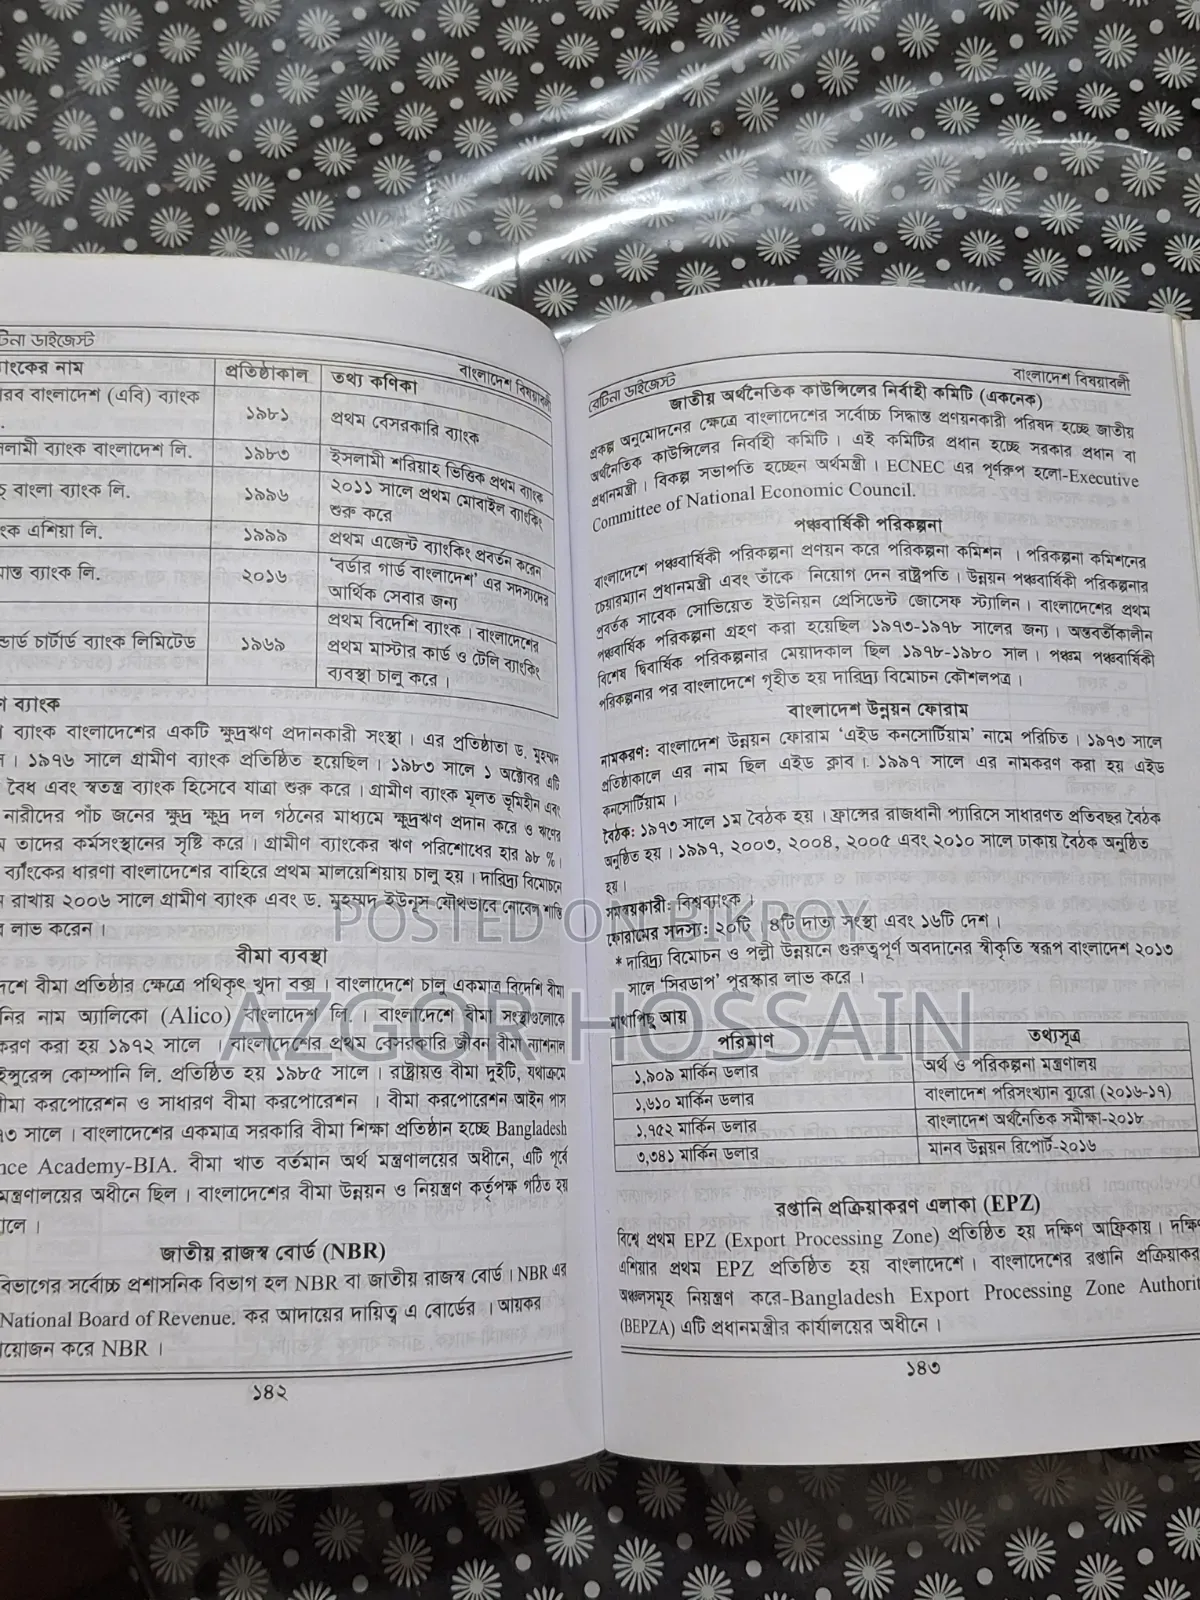 টিনা ডাইজেস্ট
বাংলাদেশ বিষয়াবলী
ব্যাংকের নাম প্রতিষ্ঠাকাল তথ্য কণিকা
আরব বাংলাদেশ (এবি) ব্যাংক
১৯৮১ প্রথম বেসরকারি ব্যাংক
ইসলামী ব্যাংক বাংলাদেশ লি. ১৯৮৩ ইসলামী শরিয়াহ ভিত্তিক প্রথম ব্যাংক
বাংলা ব্যাংক লি. ১৯৯৬ ২০১১ সালে প্রথম মোবাইল ব্যাংকিং
শুরু করে
ংক এশিয়া লি. ১৯৯৯ প্রথম এজেন্ট ব্যাংকিং প্রবর্তন করেন
মান্ত ব্যাংক লি. ২০১৬ 'বর্ডার গার্ড বাংলাদেশ' এর সদস্যদের
আর্থিক সেবার জন্য
ন্ডার্ড চার্টার্ড ব্যাংক লিমিটেড ১৯৬৯ প্রথম বিদেশি ব্যাংক। বাংলাদেশের
প্রথম মাস্টার কার্ড ও টেলি ব্যাংকিং
ব্যবস্থা চালু করে।
ণ ব্যাংক
ব্যাংক বাংলাদেশের একটি ক্ষুদ্রঋণ প্রদানকারী সংস্থা। এর প্রতিষ্ঠাতা ড. মুহম্মদ
। ১৯৭৬ সালে গ্রামীণ ব্যাংক প্রতিষ্ঠিত হয়েছিল। ১৯৮৩ সালে ১ অক্টোবর এটি
বৈধ এবং স্বতন্ত্র ব্যাংক হিসেবে যাত্রা শুরু করে। গ্রামীণ ব্যাংক মূলত ভূমিহীন এবং
নারীদের পাঁচ জনের ক্ষুদ্র ক্ষুদ্র দল গঠনের মাধ্যমে ক্ষুদ্রঋণ প্রদান করে ও ঋণের
তাদের কর্মসংস্থানের সৃষ্টি করে। গ্রামীণ ব্যাংকের ঋণ পরিশোধের হার ৯৮ %।
ব্যাংকের ধারণা বাংলাদেশের বাহিরে প্রথম মালয়েশিয়ায় চালু হয়। দারিদ্র্য বিমোচনে
রাখায় ২০০৬ সালে গ্রামীণ ব্যাংক এবং ড. মুহম্মদ ইউনূস যৌথভাবে নোবেল শান্তি
লাভ করেন।
বীমা ব্যবস্থা
দেশে বীমা প্রতিষ্ঠার ক্ষেত্রে পথিকৃৎ খুদা বক্স। বাংলাদেশে চালু একমাত্র বিদেশি বীমা
নির নাম অ্যালিকো (Alico) বাংলাদেশ লি.। বাংলাদেশে বীমা সংস্থাগুলোকে
করণ করা হয় ১৯৭২ সালে । বাংলাদেশের প্রথম বেসরকারি জীবন বীমা ন্যাশনাল
ইন্সুরেন্স কোম্পানি লি. প্রতিষ্ঠিত হয় ১৯৮৫ সালে। রাষ্ট্রায়ত্ত বীমা দুইটি, যথাক্রমে
ীমা করপোরেশন ও সাধারণ বীমা করপোরেশন । বীমা করপোরেশন আইন পাস
৭৩ সালে। বাংলাদেশের একমাত্র সরকারি বীমা শিক্ষা প্রতিষ্ঠান হচ্ছে Bangladesh
nce Academy-BIA. বীমা খাত বর্তমান অর্থ মন্ত্রণালয়ের অধীনে, এটি পূর্বে
মন্ত্রণালয়ের অধীনে ছিল। বাংলাদেশের বীমা উন্নয়ন ও নিয়ন্ত্রণ কর্তৃপক্ষ গঠিত হয়
ালে।
জাতীয় রাজস্ব বোর্ড (NBR)
বিভাগের সর্বোচ্চ প্রশাসনিক বিভাগ হল NBR বা জাতীয় রাজস্ব বোর্ড। NBR এর
National Board of Revenue. কর আদায়ের দায়িত্ব এ বোর্ডের । আয়কর
য়োজন করে NBR ।
১৪২
রেটিনা ডাইজেস্ট
বাংলাদেশ বিষয়াবলী
জাতীয় অর্থনৈতিক কাউন্সিলের নির্বাহী কমিটি (একনেক)
প্রকল্প অনুমোদনের ক্ষেত্রে বাংলাদেশের সর্বোচ্চ সিদ্ধান্ত প্রণয়নকারী পরিষদ হচ্ছে জাতীয়
অর্থনৈতিক কাউন্সিলের নির্বাহী কমিটি। এই কমিটির প্রধান হচ্ছে সরকার প্রধান বা
প্রধানমন্ত্রী। বিকল্প সভাপতি হচ্ছেন অর্থমন্ত্রী। ECNEC এর পূর্ণরূপ হলো-Executive
Committee of National Economic Council.
পঞ্চবার্ষিকী পরিকল্পনা
বাংলাদেশে পঞ্চবার্ষিকী পরিকল্পনা প্রণয়ন করে পরিকল্পনা কমিশন । পরিকল্পনা কমিশনের
চেয়ারম্যান প্রধানমন্ত্রী এবং তাঁকে নিয়োগ দেন রাষ্ট্রপতি। উন্নয়ন পঞ্চবার্ষিকী পরিকল্পনার
প্রবর্তক সাবেক সোভিয়েত ইউনিয়ন প্রেসিডেন্ট জোসেফ স্ট্যালিন। বাংলাদেশের প্রথম
পঞ্চবার্ষিক পরিকল্পনা গ্রহণ করা হয়েছিল ১৯৭৩-১৯৭৮ সালের জন্য। অন্তবর্তীকালীন
বিশেষ দ্বিবার্ষিক পরিকল্পনার মেয়াদকাল ছিল ১৯৭৮-১৯৮০ সাল। পঞ্চম পঞ্চবার্ষিকী
পরিকল্পনার পর বাংলাদেশে গৃহীত হয় দারিদ্র্য বিমোচন কৌশলপত্র।
বাংলাদেশ উন্নয়ন ফোরাম
নামকরণ: বাংলাদেশ উন্নয়ন ফোরাম 'এইড কনসোর্টিয়াম' নামে পরিচিত। ১৯৭৩ সালে
প্রতিষ্ঠাকালে এর নাম ছিল এইড ক্লাব। ১৯৯৭ সালে এর নামকরণ করা হয় এইড
কনসোর্টিয়াম।
বৈঠক: ১৯৭৩ সালে ১ম বৈঠক হয়। ফ্রান্সের রাজধানী প্যারিসে সাধারণত প্রতিবছর বৈঠক
অনুষ্ঠিত হয়। ১৯৯৭, ২০০৩, ২০০৪, ২০০৫ এবং ২০১০ সালে ঢাকায় বৈঠক অনুষ্ঠিত
হয়।
সমন্বয়কারী: বিশ্বব্যাংক।
ফোরামের সদস্য: ২০টি ৪টি দাতা সংস্থা এবং ১৬টি দেশ।
* দারিদ্র্য বিমোচন ও পল্লী উন্নয়নে গুরুত্বপূর্ণ অবদানের স্বীকৃতি স্বরূপ বাংলাদেশ ২০১৩
সালে 'সিরডাপ' পুরস্কার লাভ করে।
মাথাপিছু আয়
পরিমাণ তথ্যসূত্র
১,৯০৯ মার্কিন ডলার অর্থ ও পরিকল্পনা মন্ত্রণালয়
১,৬১০ মার্কিন ডলার বাংলাদেশ পরিসংখ্যান ব্যুরো (২০১৬-১৭)
১,৭৫২ মার্কিন ডলার বাংলাদেশ অর্থনৈতিক সমীক্ষা-২০১৮
৩,৩৪১ মার্কিন ডলার মানব উন্নয়ন রিপোর্ট-২০১৬
রপ্তানি প্রক্রিয়াকরণ এলাকা (EPZ)
বিশ্বে প্রথম EPZ (Export Processing Zone) প্রতিষ্ঠিত হয় দক্ষিণ আফ্রিকায়। দক্ষিণ
এশিয়ার প্রথম EPZ প্রতিষ্ঠিত হয় বাংলাদেশে। বাংলাদেশের রপ্তানি প্রক্রিয়াকর
অঞ্চলসমূহ নিয়ন্ত্রণ করে-Bangladesh Export Processing Zone Authorit
(BEPZA) এটি প্রধানমন্ত্রীর কার্যালয়ের অধীনে।
১৪৩
POSTED ON BIKROY
AZGOR HOSSAIN